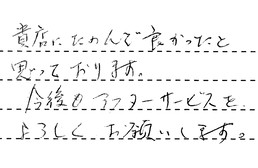 貴店にたのんで良かったと
思っております。
今後もアフターサービスを
よろしくお願いします。